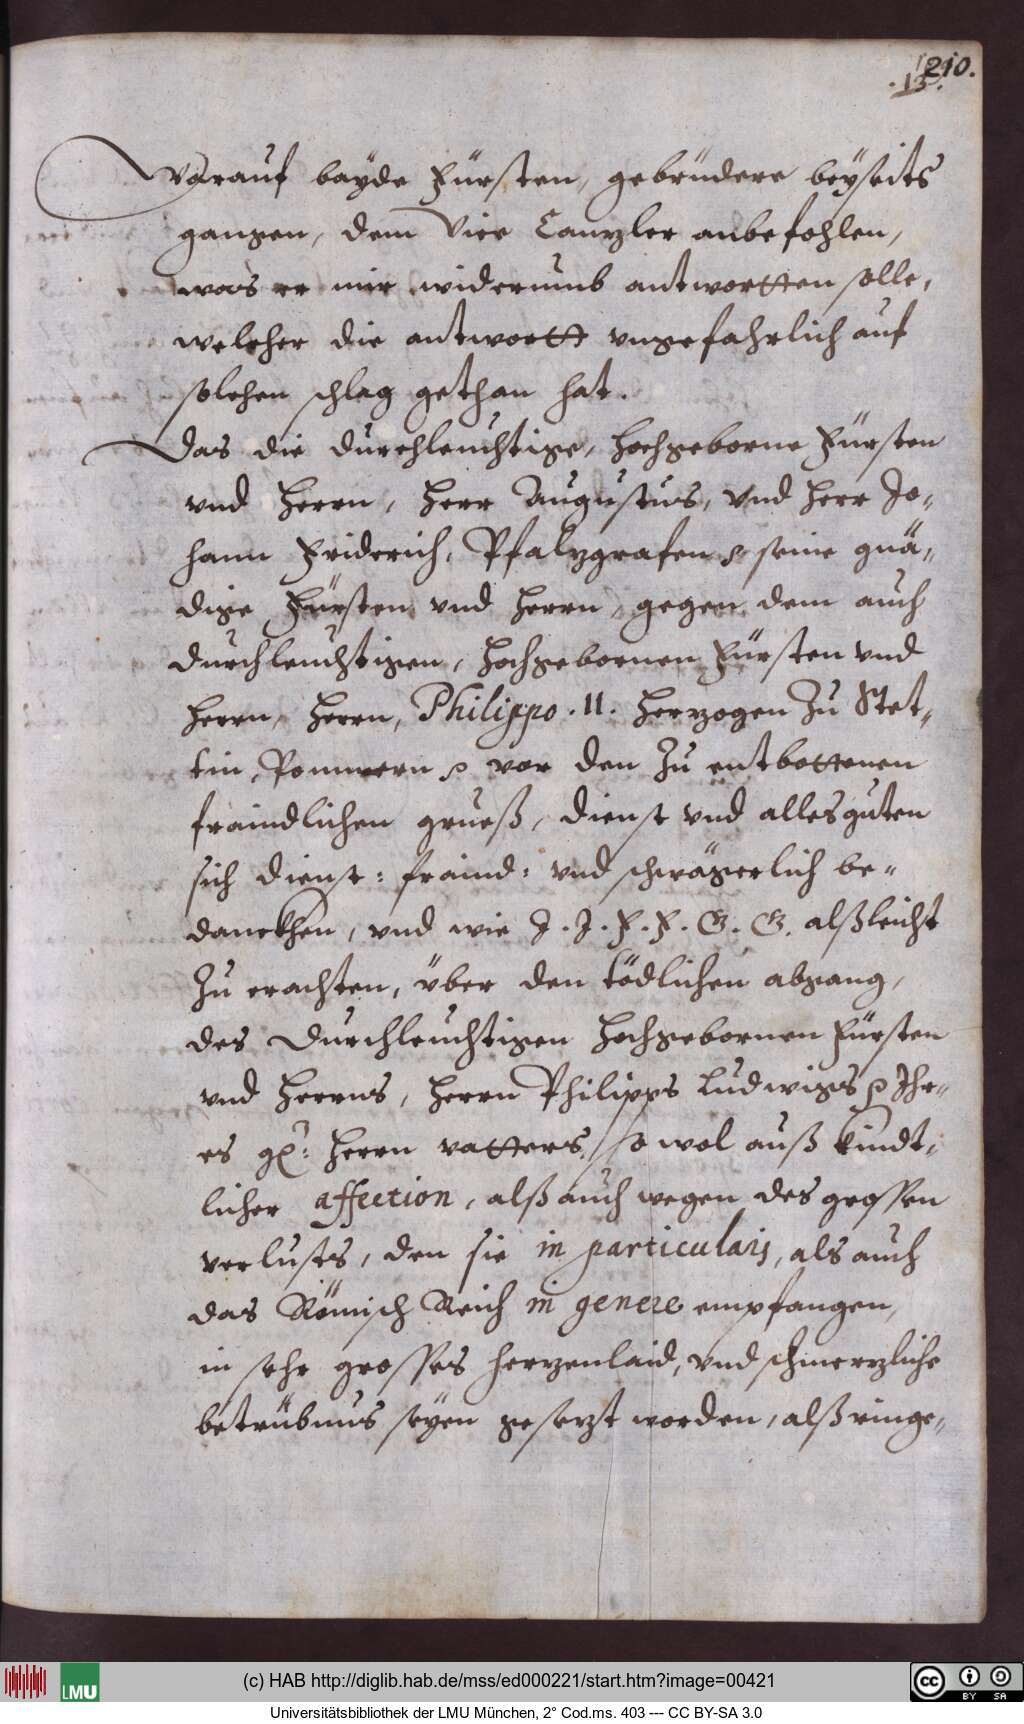 210.
13.
Warauf bayde Fürsten, gebrüdere beyseits
gangen, dem Vice Canzler anbefohlen,
was er mir widerumb antwortten solle,
welcher die antwortt ungefahrlich auf
solchen schlag gethan hat.
Das die durchleuchtige, hochgeborne Fürsten
und Herrn, Herr Augustus, und Herr Jo-
hann Friderich, Pfalzgrafen seine gnä-
dige Fürsten und Herrn, gegen dem auch
durchleuchtigen, hochgebornen Fürsten und
Herrn, Herrn, Philippo .II. Herzogen Zu Stet-
tin, Pommern vor den Zu entbottenen
fraindlichen grueß, dienst und alles guten
sich dienst: fraind: und schwägerlich be-
danckhen, und wie J. J. F. F. G. G. alß leicht
Zu erachten, über den tödlichen abgang,
des Durchleuchtigen Hochgebornen Fürsten
und Herrns, Herrn Philipps Ludwigs Ihr-
es gl: Herrn vatters, so wol auß kindt-
licher affection, alß auch wegen des grossen
verlusts, den sie in particulari, als auch
das Römisch Reich in genere empfangen,
in sehr grosses herzenlaid, und schmerzliche
betrübnus seyen gesetzt worden, alß ringe-
(c) HAB http://diglib.hab.de/mss/ed000221/start.htm?image=00421
LMU
cc BY SA
Universitätsbibliothek der LMU München, 2° Cod.ms. 403 --- CC BY-SA 3.0